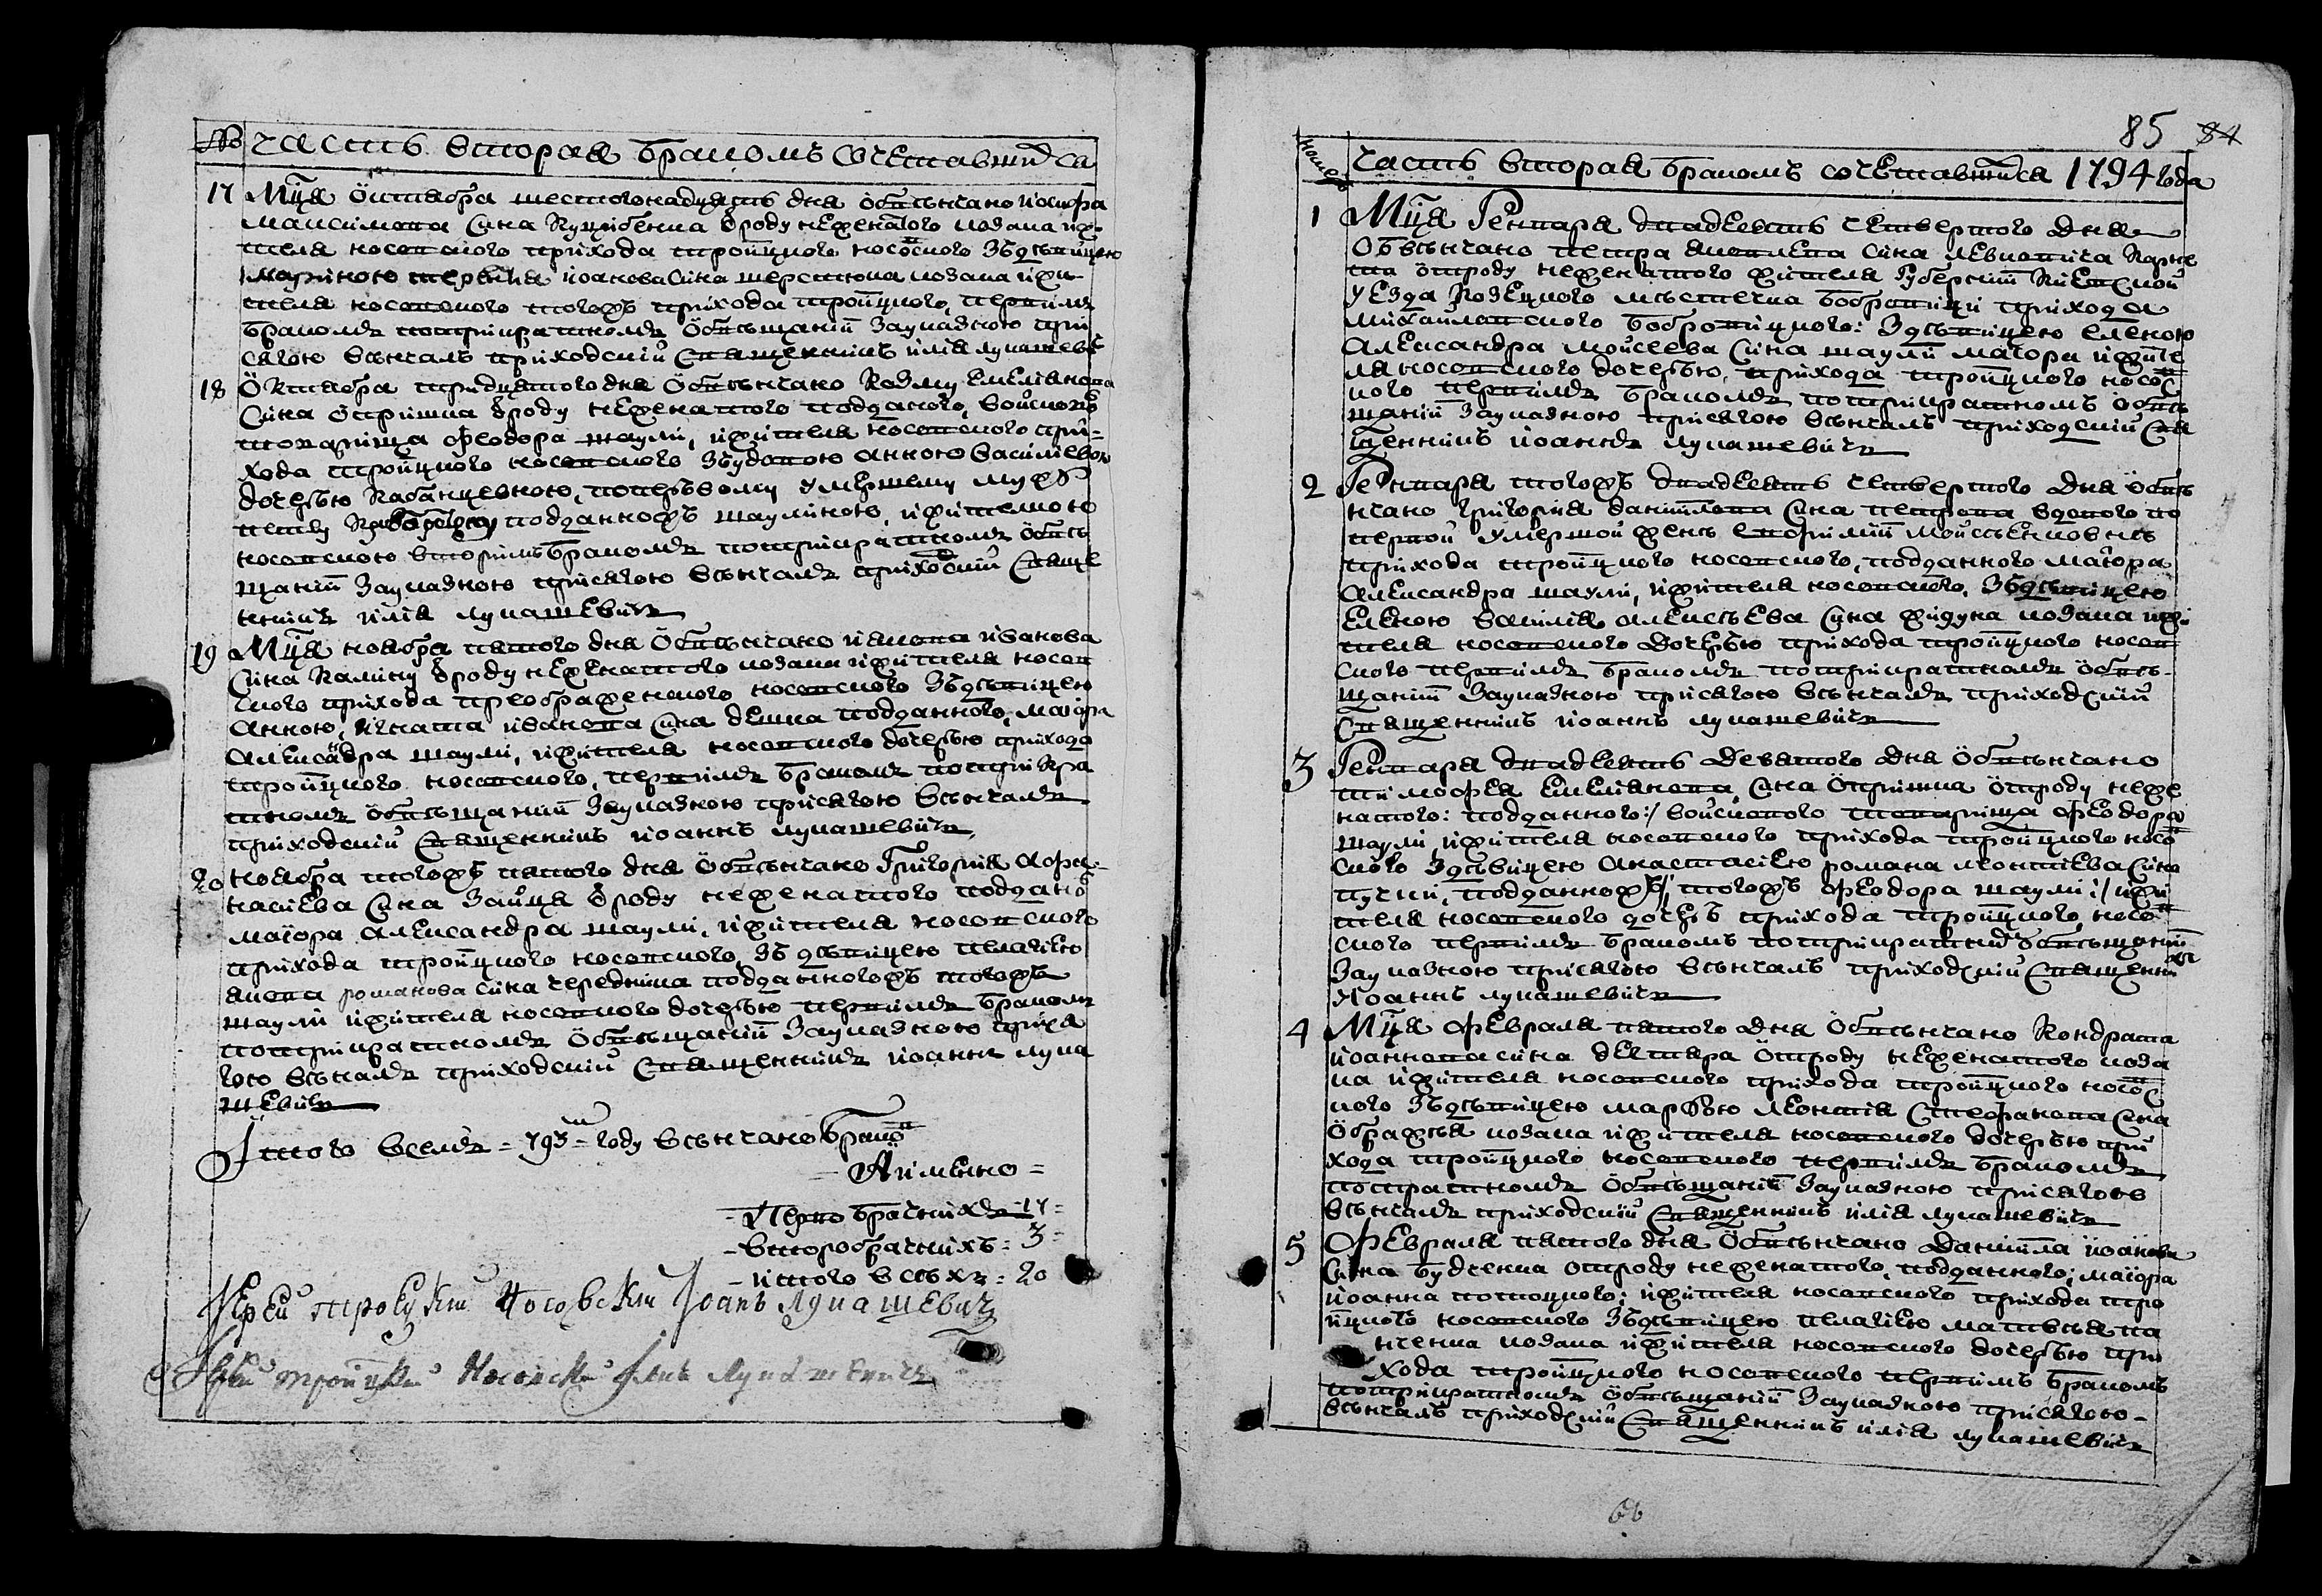 № часть вторая бракомъ сочетавшихся
17 Мцⷭа октября шестогонадцять дня обвѣнчано иосифа
максимова сина Куцибенка ѿроду неженатого козака и жи-
теля носовского прихода троицкого носовского зъдѣвицею
мариною иоанова сина шерстюка козака и жи-
теля носовского тогожъ прихода троицкого, первимъ
бракомъ потрикратномъ обвѣщаніи зауказною при-
сягою вѣнчалъ приходскій священникъ илія лукашевичъ
18 Октября тридцятого дня обвѣнчано Козму емеліянова
сина опришка ѿроду неженатого подданого, войскового
товарища феодора шаули, и жителя носовского при-
хода троицкого носовского зъудовою анною василіевою
дочерью Кабанцевною, попервому умершему мужу
подданногожъ шаулиного, и жителкою
носовскою вторимъ бракомъ потрикратномъ обвѣ-
щаніи зауказною присягою вѣнчалъ приходскій священ-
никъ илія лукашевичъ
19 Мцⷭа ноября пятого дня обвѣнчано иакова иванова
сина Калину ѿроду неженатого козака и жителя носов-
ского прихода преображенского носовского зъдѣвицею
анною, игната иванова сина дешка подданного, маіора
александра шаули, и жителя носовского дочерью прихода
троицкого носовского, первимъ бракомъ потрикра-
тномъ обвѣщаніи зауказною присягою вѣнчалъ
приходскій священникъ иоаннъ лукашевичъ
20 ноября тогожъ пятого дня обвѣнчано Григорія афа-
насіева сина зайця ѿроду неженатого подданого
маіора александра шаули, и жителя носовского
прихода троицкого носовского, зъдѣвицею пелагіею
якова романова сина чередника подданногожъ тогожъ
шаули и жителя носовского дочерью первимъ бракомъ
потрикратномъ обвѣщаніи зауказною прися-
гою вѣнчалъ приходскій священникъ иоаннъ лука
шевичъ
Итого всемъ 793 году вѣнчано браковъ
А имѣнно
Перво брачнихъ 17
второбрачнихъ 3
итого всѣхъ 20
Иерей троецкій Носовскій Иоанъ Лукашевичъ
Иерей троицкий Носовский Илия Лукашевичъ
85 84
номеръ часть вторая бракомъ сочетавшихся 1794 года
1 Мцⷭа Генвара двадесять четвертого дня
обвѣнчано петра яковлева сина левковича Карне
ка ѿроду неженатого жителя губерніи Кіевской
уезда Козецкого мѣстечка бобровици прихода
михайловского бобровицкого: зъдѣвицею еленою
александра мойсеева сина шаули маіора и жите
ля носовского дочерью, прихода троицкого носовс
кого первимъ бракомъ потрикратномъ обвѣ
щаніи зауказною присягою вѣнчалъ приходскій свя
щенникъ иоаннъ лукашевичъ
2 Генвара тогожъ двадесять четвертого дня обвѣ
нчано григорія даниилова сина петрова вдового по
первой умершой женѣ евфиміи мойсѣенковнѣ
прихода троицкого носовского, подданного маіора
александра шаули, и жителя носовского, зъдѣвицею
еленою василія алексѣева сина жидука козака и жи
теля носовского дочерью прихода троицкого носов
ского первимъ бракомъ потрикратномъ обвѣ-
щаніи зауказною присягою вѣнчалъ приходскій
священникъ иоаннъ лукашевичъ
3 Генвара двадесять девятого дня обвѣнчано
тимофея емеліянова сина опришка ѿроду неже
натого: подданного:/ войскового товарища феодора
шаули, и жителя носовского прихода троицкого носов
ского зъдѣвицею анастасіею романа леонтіева сина
пучки, подданногожъ/ тогожъ феодора шаули:/ и жи
теля носовского дочерью прихода троицкого носов
ского первимъ бракомъ потрикратномъ обвѣщаніи
зауказною присягою вѣнчалъ приходскій священникъ
иоаннъ лукашевичъ
4 Мцⷭа февраля пятого дня обвѣнчано Кондрата
иоаннова сина дегтяра ѿроду неженатого коза
ка и жителя носовского прихода троицкого носовс
кого зъдѣвицею марфою леонтія стефанова сина
ображѣя козака и жителя носовского дочерью при
хода троицкого носовского первимъ бракомъ
потрикратномъ обвѣщаніи зауказною присягою
вѣнчалъ приходскій священникъ илія лукашевичъ
5 Февраля пятого дня обвѣнчано даниила иоанова
сина будченка ѿроду неженатого, подданного: маіора
иоанна почоцкого: и жителя носовского прихода тро
ицкого носовского зъдѣвицею пелагіею матвѣя па
нченка козака и жителя носовского дочерью при
хода троицкого носовского первимъ бракомъ
потрикратномъ обвѣщаніи зауказною присягою
вѣнчалъ приходскій священникъ илія лукашевичъ